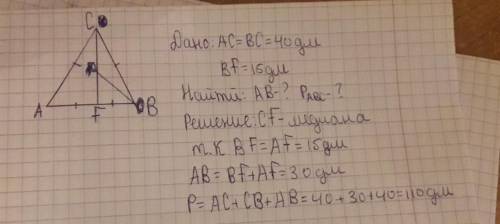 C
A
F
B
Дано: AC=BC=40дм
Bf=15дм
Найти: AB-? PABC-?
Решение: Cf-медиана
т.к Bf=Af=15дм
AB=Bf+Af=30дм
P=AC+CB+AB=40+30+40=110дм